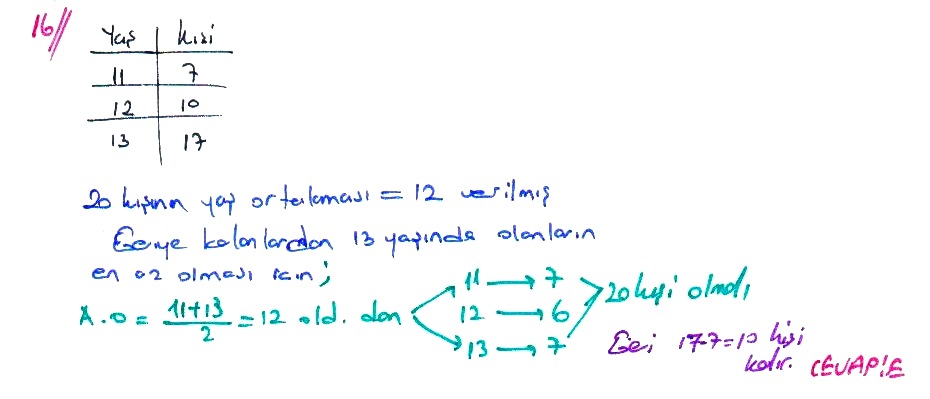 16//
Yaş Kişi
11 7
12 10
13 17
20 kişinin yaş ortalaması = 12 verilmiş
Geriye kalanlardan 13 yaşında olanların
en az olması için;
A.O = 11+13 / 2 = 12 old. dan
11 → 7
12 → 6
13 → 7
20 kişi olmalı
Geri 17-7=10 kişi
kalır. CEVAP:E